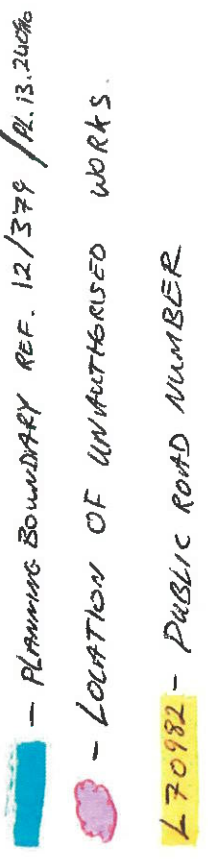 – PLANNING BOUNDARY REF. 12/379 / PL.13.241010
– LOCATION OF UNAUTHORISED WORKS.
L70982 – PUBLIC ROAD NUMBER